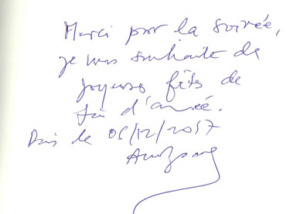 Merci pour la soirée,
je vous souhaite de
joyeuses fêtes de
fin d'année.
le 06/12/2017